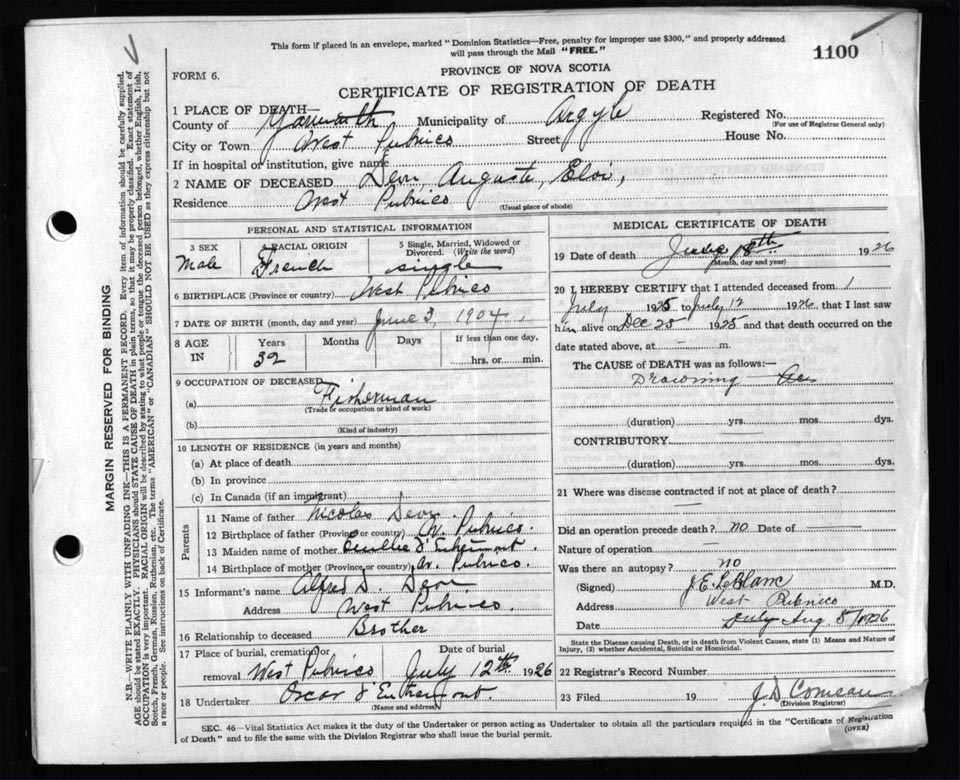 This form if placed in an envelope, marked "Dominion Statistics—Free, penalty for improper use $300," and properly addressed
will pass through the Mail "FREE."
1100
PROVINCE OF NOVA SCOTIA
FORM 6.
CERTIFICATE OF REGISTRATION OF DEATH
1 PLACE OF DEATH—
County of Yarmouth Municipality of Argyle Registered No.
(For use of Registrar General only)
City or Town West Pubnico Street House No.
If in hospital or institution, give name
2 NAME OF DECEASED Auguste, Eloi,
Residence West Pubnico
(Usual place of abode)
PERSONAL AND STATISTICAL INFORMATION
3 SEX
Male
4 RACIAL ORIGIN
French
5 Single, Married, Widowed or Divorced. (Write the word)
single
6 BIRTHPLACE (Province or country) West Pubnico
7 DATE OF BIRTH (month, day and year) June 3, 1904
8 AGE IN
Years Months Days If less than one day,
32 hrs. or min.
9 OCCUPATION OF DECEASED
(a) Fisherman
(Trade or occupation or kind of work)
(b)
(Kind of industry)
10 LENGTH OF RESIDENCE (in years and months)
(a) At place of death
(b) In province
(c) In Canada (if an immigrant)
Parents
11 Name of father Nicolas
12 Birthplace of father (Province or country) W. Pubnico.
13 Maiden name of mother d'Entremont.
14 Birthplace of mother (Province or country) W. Pubnico.
15 Informant's name Alfred D.
Address West Pubnico.
16 Relationship to deceased Brother
17 Place of burial, cremation or removal Date of burial
West Pubnico July 12th 1926
18 Undertaker Oscar d'Entremont
(Name and address)
MEDICAL CERTIFICATE OF DEATH
19 Date of death July 1926
(Month, day and year)
20 I, HEREBY CERTIFY that I attended deceased from 1
July 1925 to July 12 1926, that I last saw
him alive on Dec 25 1925 and that death occurred on
date stated above, at — m.
The CAUSE of DEATH was as follows:—
Drowning
(duration) yrs. mos. dys.
CONTRIBUTORY
(duration) yrs. mos. dys.
21 Where was disease contracted if not at place of death?
Did an operation precede death? no Date of
Nature of operation
Was there an autopsy? no
(Signed) J.E. LeBlanc M.D.
Address West Pubnico
Date July Aug 8/1926
State the Disease causing Death, or in death from Violent Causes, state (1) Means and Nature of
Injury, (2) whether Accidental, Suicidal or Homicidal.
22 Registrar's Record Number
23 Filed 19 J. D. Comeau
(Division Registrar)
SEC. 46—Vital Statistics Act makes it the duty of the Undertaker or person acting as Undertaker to obtain all the particulars required in the "Certificate of Registration
of Death" and to file the same with the Division Registrar who shall issue the burial permit.
(OVER)
MARGIN RESERVED FOR BINDING
N.B.—WRITE PLAINLY WITH UNFADING INK—THIS IS A PERMANENT RECORD. Every item of information should be carefully supplied.
AGE should be stated EXACTLY. PHYSICIANS should STATE CAUSE OF DEATH in plain terms, so that it may be properly classified. Exact statement of
OCCUPATION is very important. RACIAL ORIGIN will be described by stating to what people or tongue the deceased person belonged, whether English, Irish,
Scotch, French, German, Russian, Ruthenian, etc. The terms "AMERICAN" or "CANADIAN" SHOULD NOT BE USED as they express citizenship but not
a race or people. See instructions on back of Certificate.